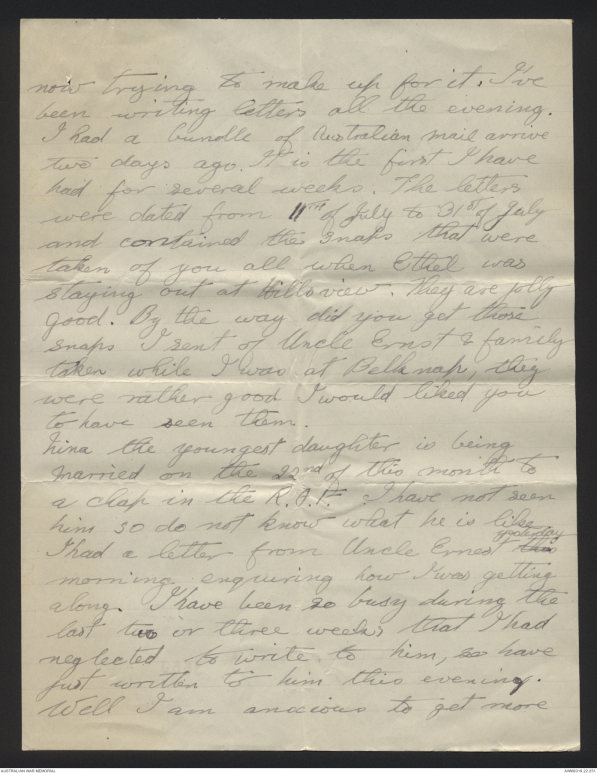 now trying to make up for it. I've
been writing letters all the evening.
I had a bundle of Australian mail arrive
two days ago. It is the first I have
had for several weeks. The letters
were dated from 11TH of July to 31ST of July
and contained the snaps that were
taken of you all when Ethel was
staying out at Hillsview. They are jolly
good. By the way did you get those
snaps I sent of Uncle Ernst & family
taken while I was at Belknap, they
were rather good I would liked you
to have seen them.
Nina the youngest daughter is being
married on the 22nd of this month to
a chap in the R.A.F. I have not seen
him so do not know what he is like
I had a letter from Uncle Ernest this yesterday
morning enquiring how I was getting
along. I have been so busy during the
last two or three weeks that I had
neglected to write to him, so have
just written to him this evening.
Well I am anxious to get more
AUSTRALIAN WAR MEMORIAL